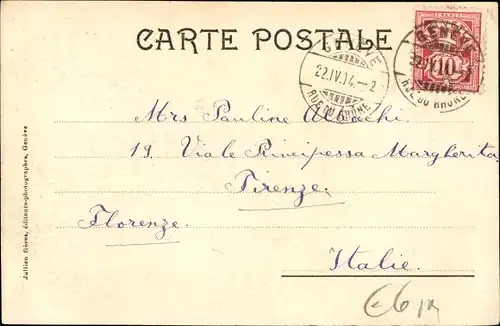 CARTE POSTALE
GENÈVE
22.IV.14.-2
RUE DU RHÔNE
GENÈVE
22.IV.
10
RUE DU RHÔNE
Mrs Pauline
19. Viale Principessa Margherita
Firenze.
Florenze.
Italie.
Jullien frères, éditeurs-photographes, Genève